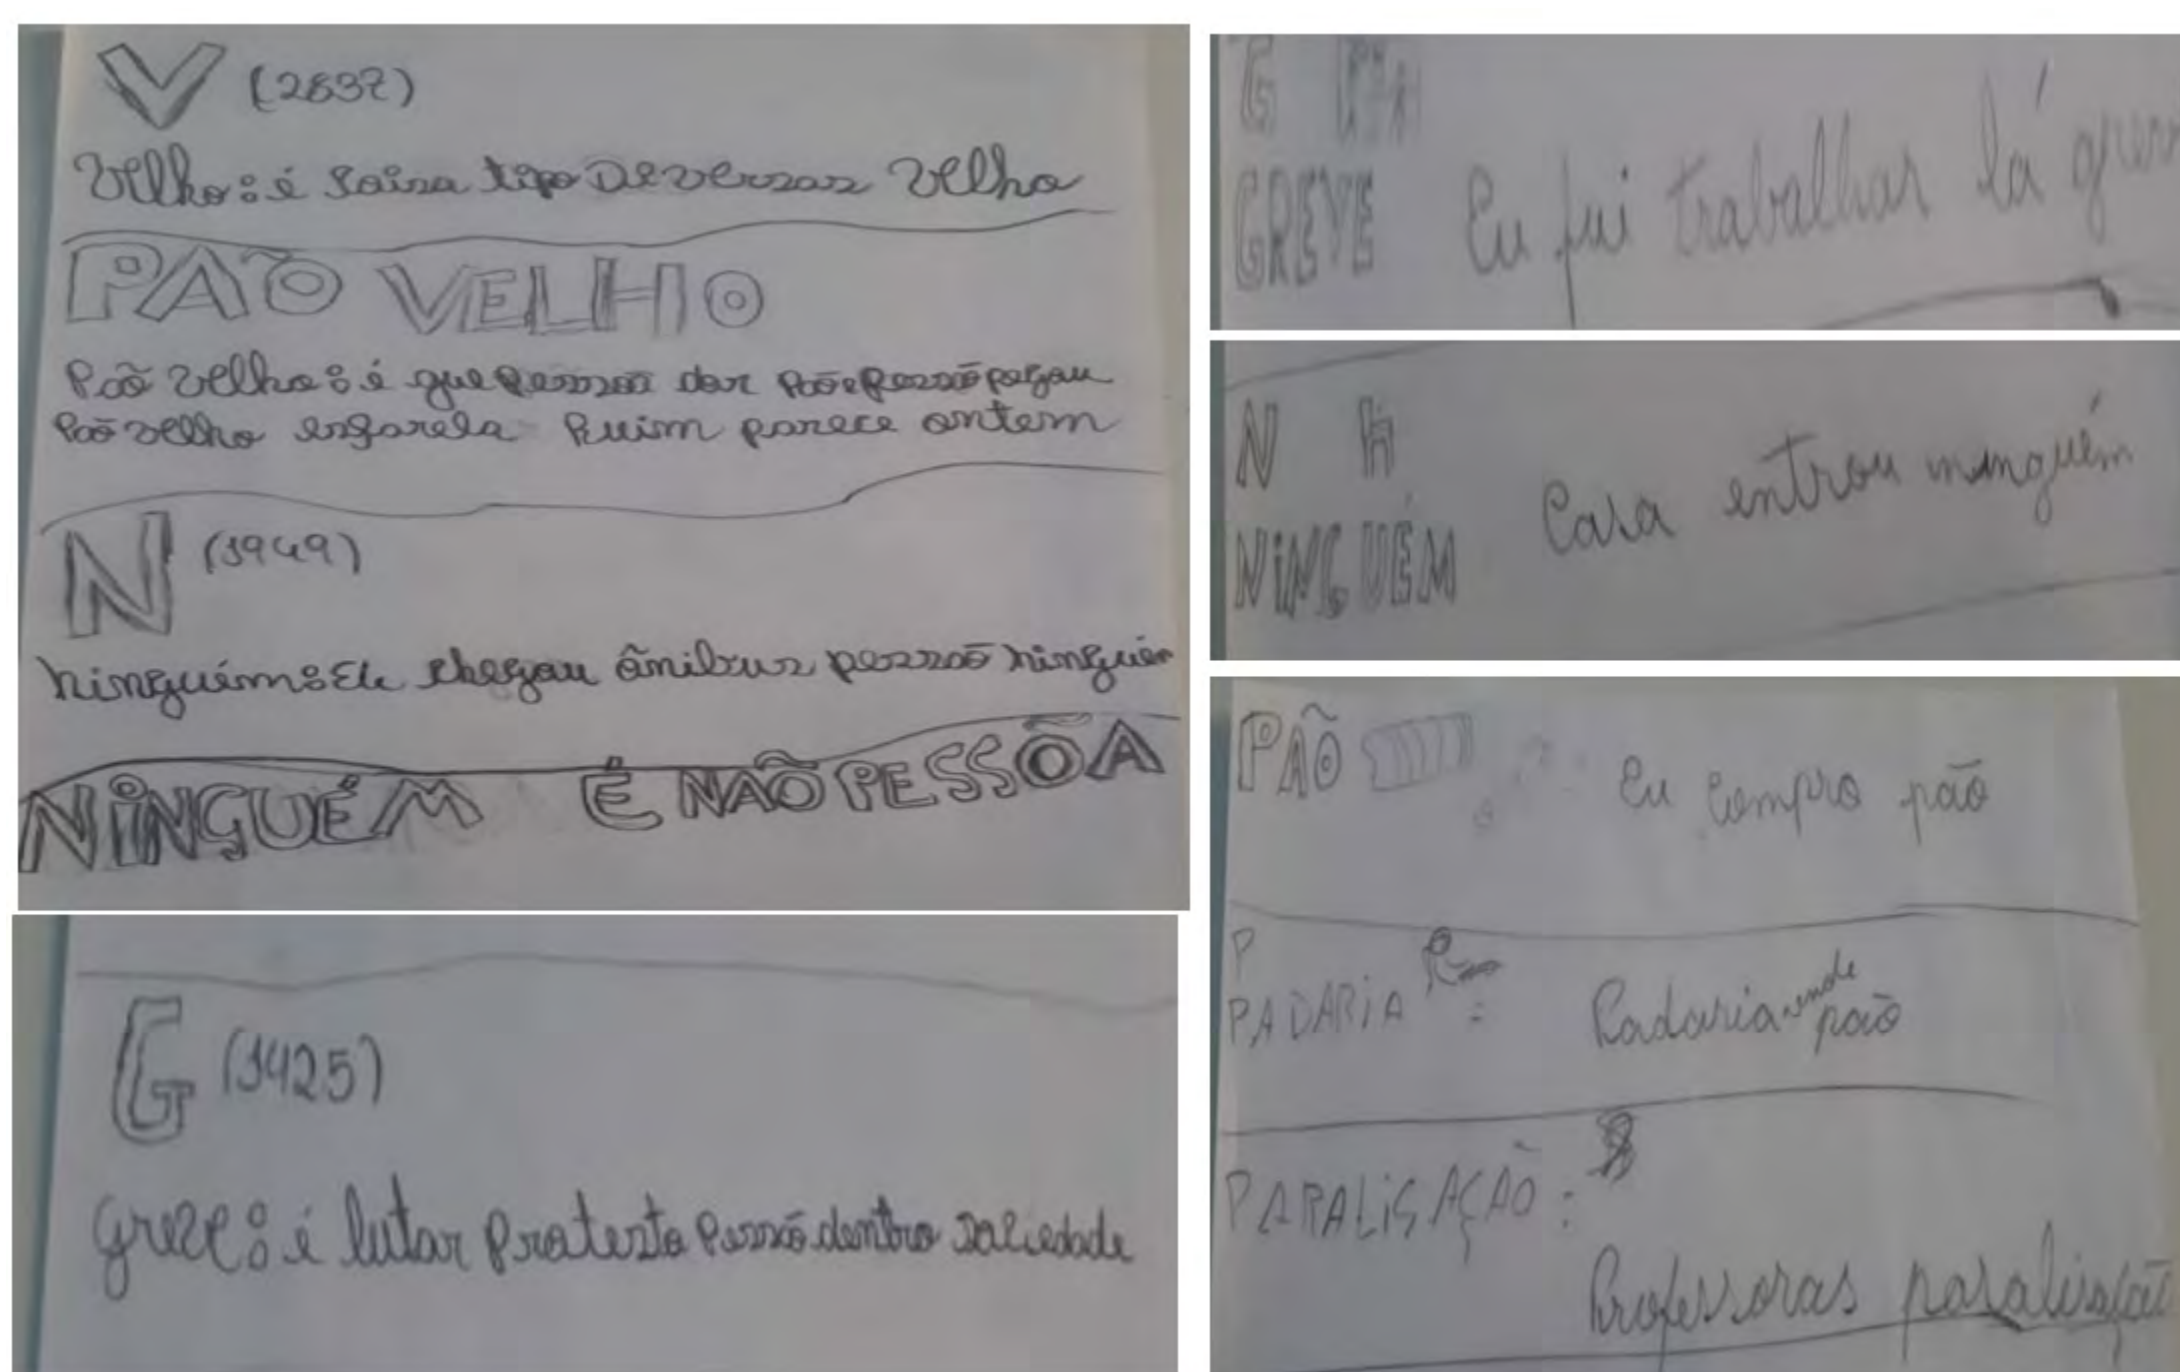 V (2837)
Velho: é Coisa tipo Deversas velho
PAÕ VELHO
Paõ velho: é que pessoã dar paõ e pessoõ pegau
Paõ velho esfarela Ruim parece ontem
N (1949)
ninguém: Ele chegou ônibus pessoõ ninguém
NINGUÉM É NAÕ PESSÕA
G (1425)
greve: é lutar protesto pessoõ dentro sociedade
G
GREVE Eu fui trabalhar lá
N h
NINGUÉM Casa entrou ninguém
PAÕ Eu compro pão
P
PADARIA : Padaria vende
pão
PARALISAÇÃO :
Professoras paralisação